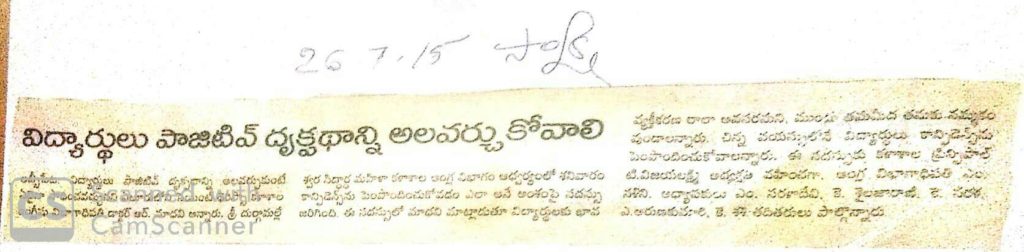 26.7.15 సాక్షి
విద్యార్థులు పాజిటివ్ దృక్పథాన్ని అలవర్చుకోవాలి
విద్యార్థులు పాజిటివ్ దృక్పథాన్ని అలవర్చుకుంటే
అన్నారు. శ్రీ దుర్గామల్లే
శ్వర సిద్ధార్థ మహిళా కళాశాల ఆంగ్ల విభాగం ఆధ్వర్యంలో శనివారం
కాన్ఫిడెన్స్‌ను పెంపొందించుకోవడం ఎలా అనే అంశంపై సదస్సు
జరిగింది. ఈ సదస్సులో మాధవి మాట్లాడుతూ విద్యార్థులకు భావ
వ్యక్తీకరణ రావాలా అవసరమని, ముందు తమమీద తమకు నమ్మకం
వుండాలన్నారు. చిన్న వయస్సులోనే విద్యార్థులు కాన్ఫిడెన్స్‌ను
పెంపొందించుకోవాలన్నారు. ఈ సదస్సుకు కళాశాల ప్రిన్సిపాల్
టి.విజయలక్ష్మి అధ్యక్షత వహించగా, ఆంగ్ల విభాగాధిపతి ఎం.
నళిని, అధ్యాపకులు ఎం. సరళాదేవి, కె. శైలజారాణి, కె. సరళ,
ఎ.అరుణకుమారి, కె. శశి తదితరులు పాల్గొన్నారు
CS Scanned with
CamScanner